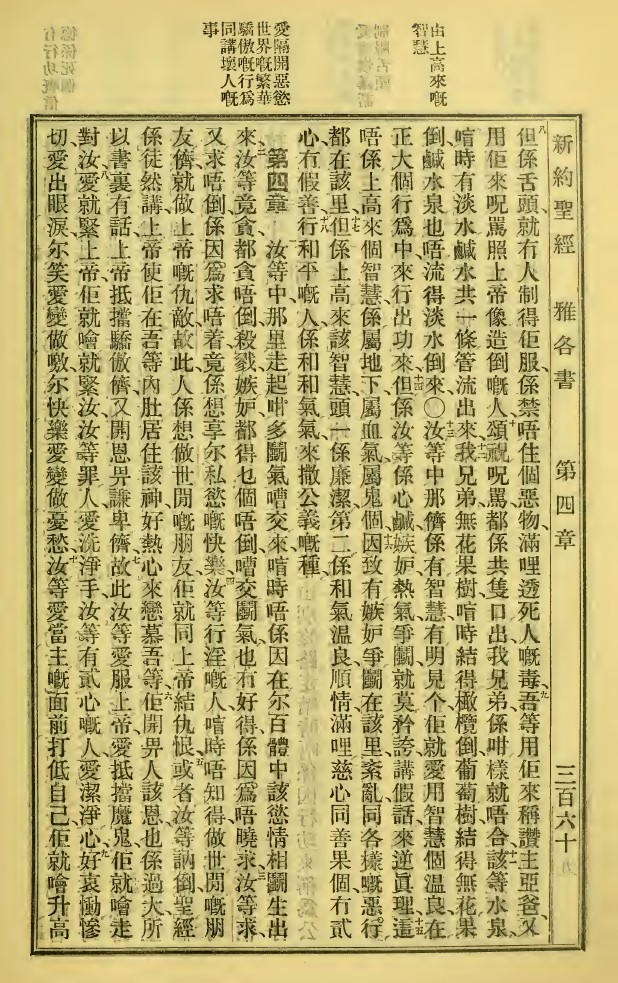 新約聖經 雅各書 第四章 三百六十
由上高來嘅
智慧
愛隔開惡慾
世界嘅繁華
驕傲嘅行爲
同講壞人嘅
事
八但係舌頭、就冇人制得佢服、係禁唔住個惡物、滿哩透死人嘅毒、九吾等用佢來稱讚主亞爸、又
用佢來呪罵照上帝像造倒嘅人、十頌祝呪罵都係共隻口出、我兄弟係咁樣就唔合該、十一等水泉、
喧時有淡水鹹水共一條管流出來、十二我兄弟、無花果樹、喧時結得橄欖倒、葡萄樹結得無花果
倒、鹹水泉也唔流得淡水倒來、〇十三汝等中那儕係有智慧、有明見个、佢就愛用智慧個溫良、在
正大個行爲中來行出功來、十四但係汝等係心鹹嫉妒、熱氣爭鬬、就莫矜誇講假話來逆眞理、十五這
唔係上高來個智慧、係屬地下、屬血氣、屬鬼個、十六因致有嫉妒爭鬬在該里、紊亂同各樣嘅惡行
都在該里、十七但係上高來該智慧、頭一係廉潔、第二係和氣溫良順情、滿哩慈心同善果個、冇貳
心冇假善行、十八和平嘅人、係和和氣氣來撒公義嘅種、
第四章 汝等中那里走起咁多鬬氣嘈交來、喧時唔係因在尔百體中該慾情相鬬生出
來、二汝等竟貪都貪唔倒、殺戮嫉妒都得乜個唔倒、嘈交鬬氣也冇好得、係因爲唔曉求、三汝等求、
又求唔倒、係因爲求唔着、竟係想享尔私慾嘅快樂、四汝等行淫嘅人、喧時唔知得做世間嘅朋
友儕、就做上帝嘅仇敵、故此人係想做世間嘅朋友、佢就同上帝結仇恨、五或者汝等訥倒聖經
係徒然講、上帝使佢在吾等內肚居住該神、好熱心來戀慕吾等、六佢開畀人該恩也係過大、所
以書裏有話、上帝抵擋驕傲儕、又開恩畀謙卑儕、七故此汝等愛服上帝、愛抵擋魔鬼、佢就噲走
對汝、八愛就緊上帝、佢就噲就緊汝、汝等罪人愛洗淨手、汝等有貳心嘅人、愛潔淨心、九好哀慟慘
切、愛出眼淚、尔笑愛變做噭、尔快樂愛變做憂愁、十汝等愛當主嘅面前打低自己、佢就噲升高